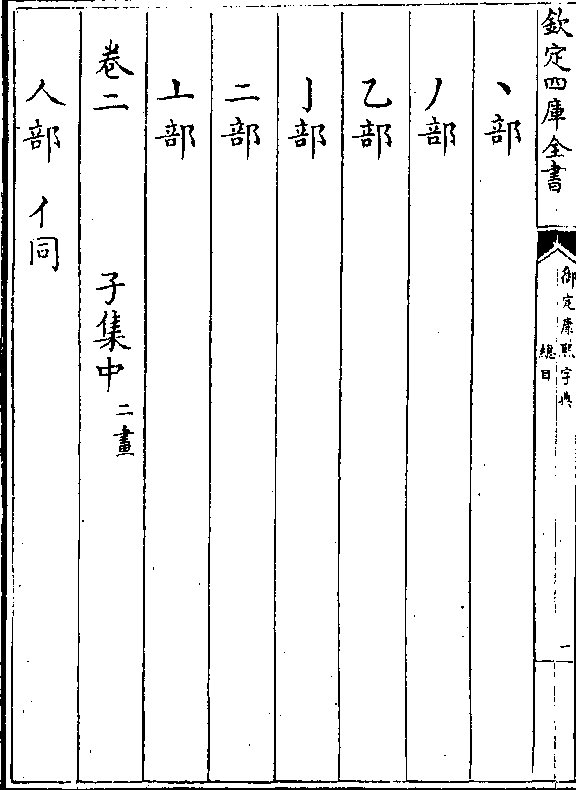 欽定四庫全書
御定康熙字典
總目
一
丶部
丿部
乙部
亅部
二部
亠部
卷二 子集中 二畫
人部 亻同